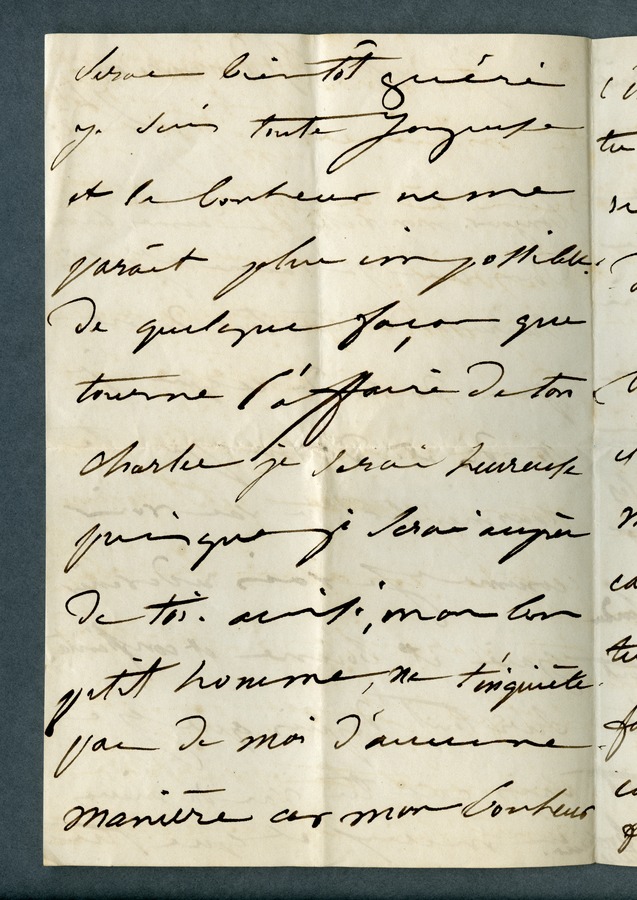 serai bientôt guéri
je suis toute joyeuse
et le bonheur ne me
parait plus impossible.
de quelque façon que
tourne l'affaire de ton
Charles je serai heureuse
puisque je serai auprès
de toi. ainsi, mon bon
petit homme, ne t'inquiète
pas de moi d'aucune
manière car mon bonheur